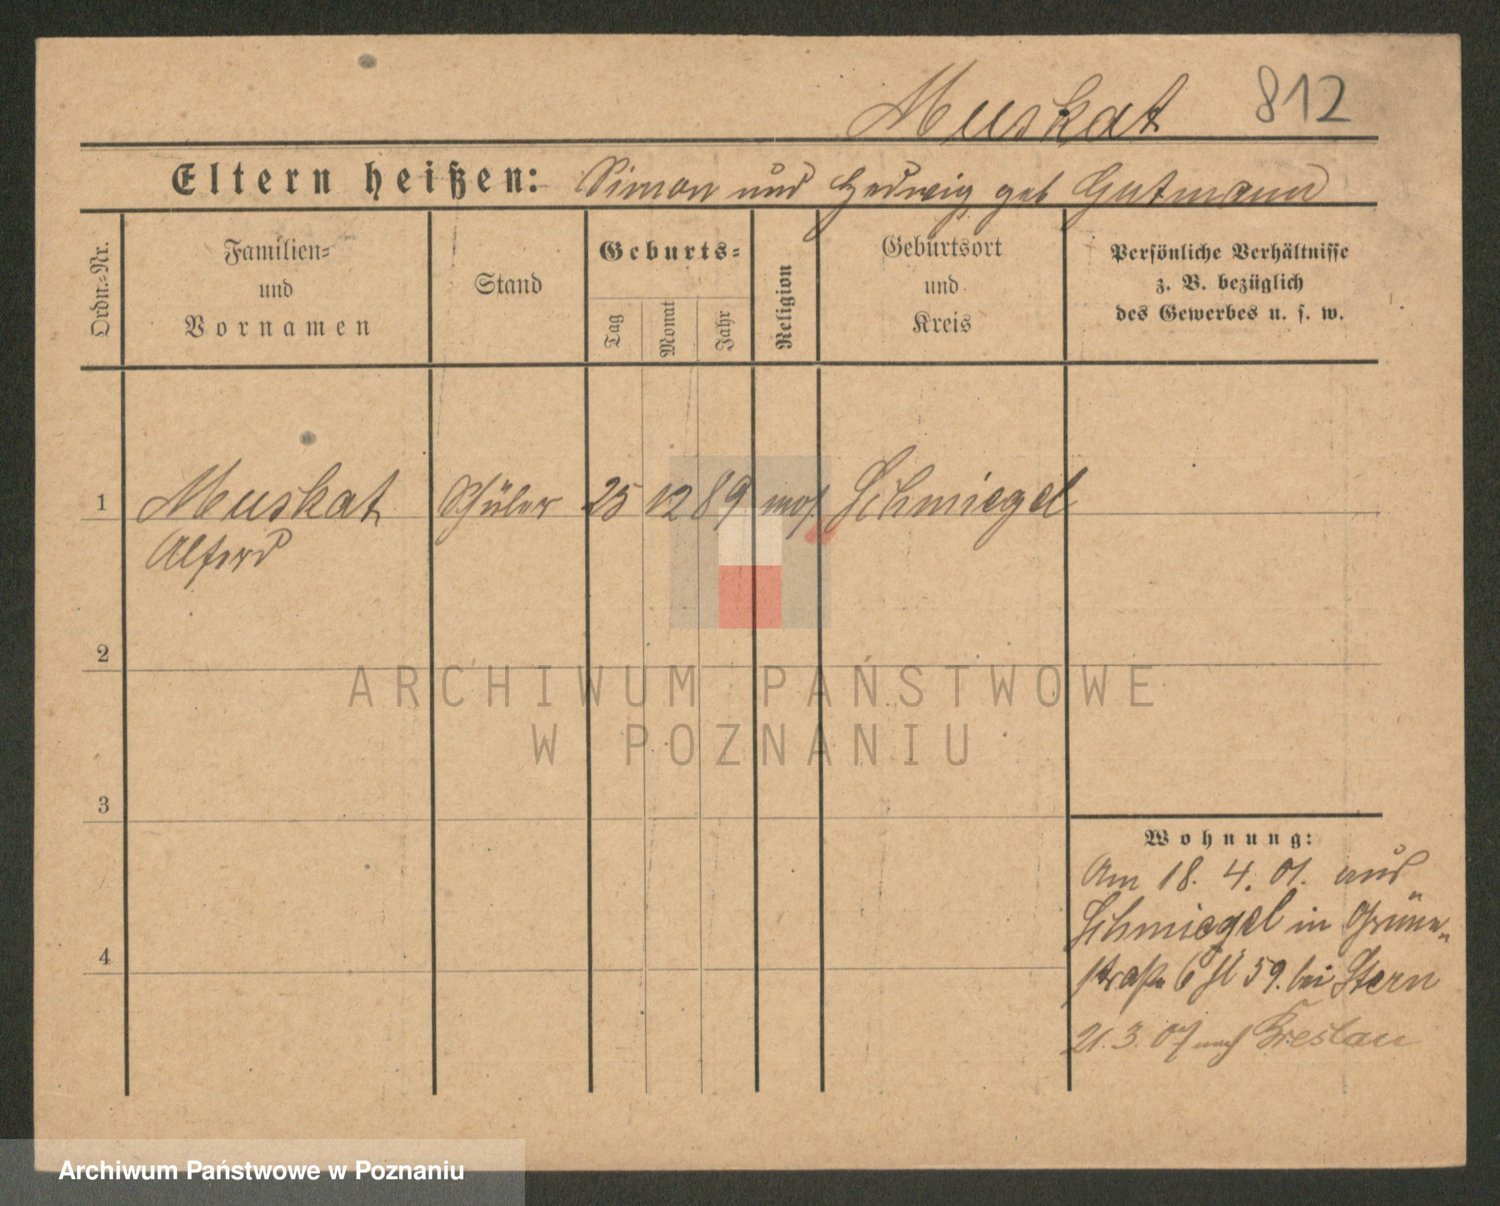 Muskat 812
Eltern heißen: Simon und Hedwig geb Gutmann
Ordn.-Nr.
Familien-
und
Vornamen
Stand
Geburts-
Tag
Monat
Jahr
Religion
Geburtsort
und
Kreis
Persönliche Verhältnisse
z. B. bezüglich
des Gewerbes u. s. w.
1 Muskat Schüler 25 12 89 mos. Schmiegel
Alfred
2
3
4
Wohnung:
Am 18. 4. 01. aus
Schmiegel in Grüne-
straße 6 59. bei Stern
21. 3. 07 nach Breslau
ARCHIWUM PAŃSTWOWE
W POZNANIU
Archiwum Państwowe w Poznaniu